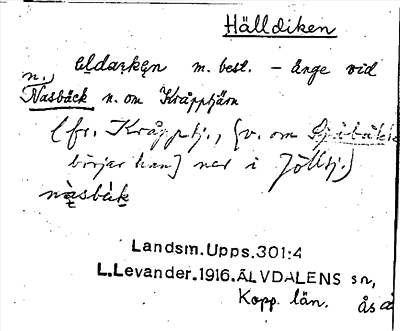 Hälldiken
eldarkęn m. best. – Änge vid
n.,
Nasbäck n. om Kråpptjärn
(fr. Kråpptj., [v. om
börjar han] ner i
nàsbäk
Landsm. Upps. 301:4
L. Levander. 1916. ÄLVDALENS sn,
Kopp. län.